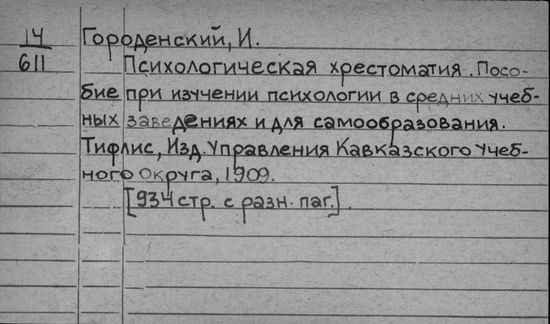 14
611
Городенский, И.
Психологическая хрестоматия. Посо-
бие при изучении психологии в средних учеб-
ных заведениях и для самообразования.
Тифлис, Изд. Управления Кавказского Учеб-
ного Округа, 1909.
[934 стр. с разн. паг.].